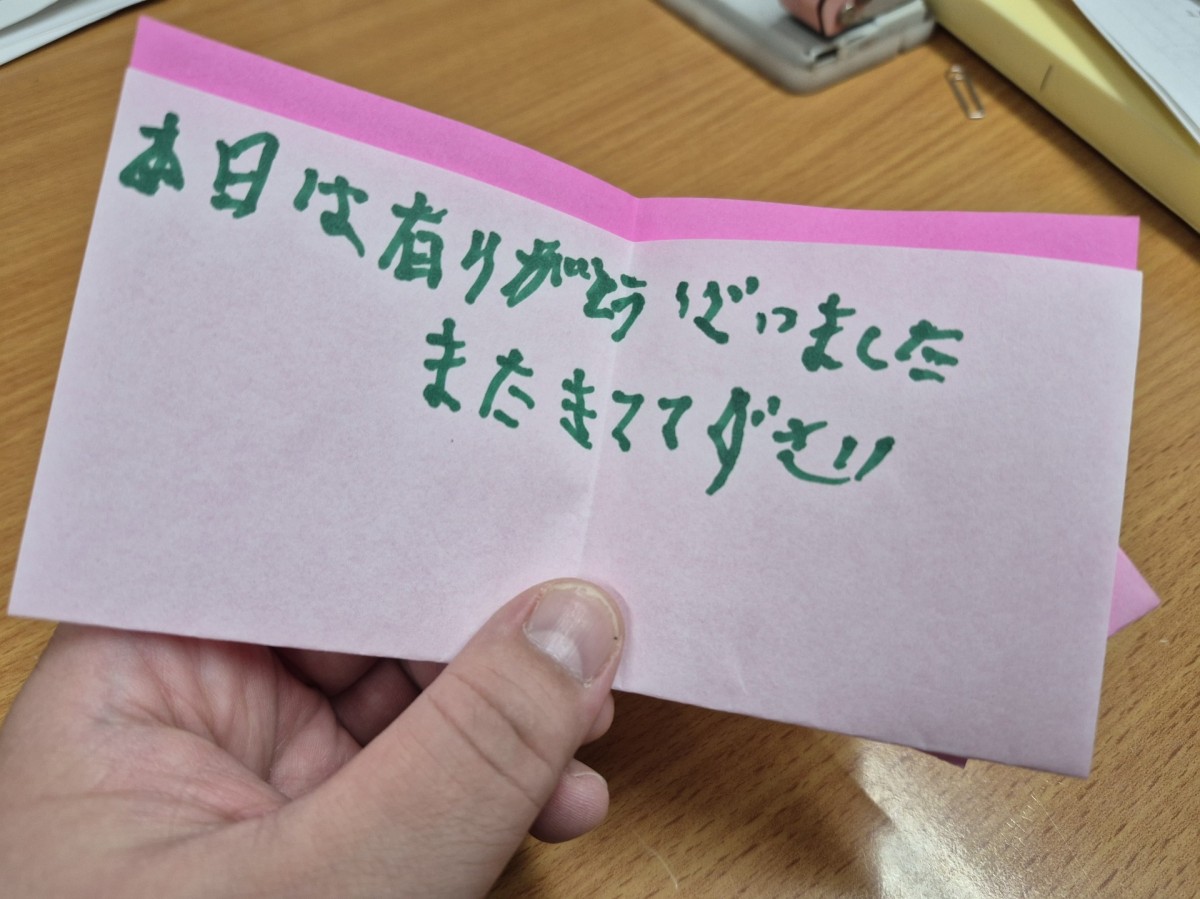 本日は有りがとうございました
またきててださい